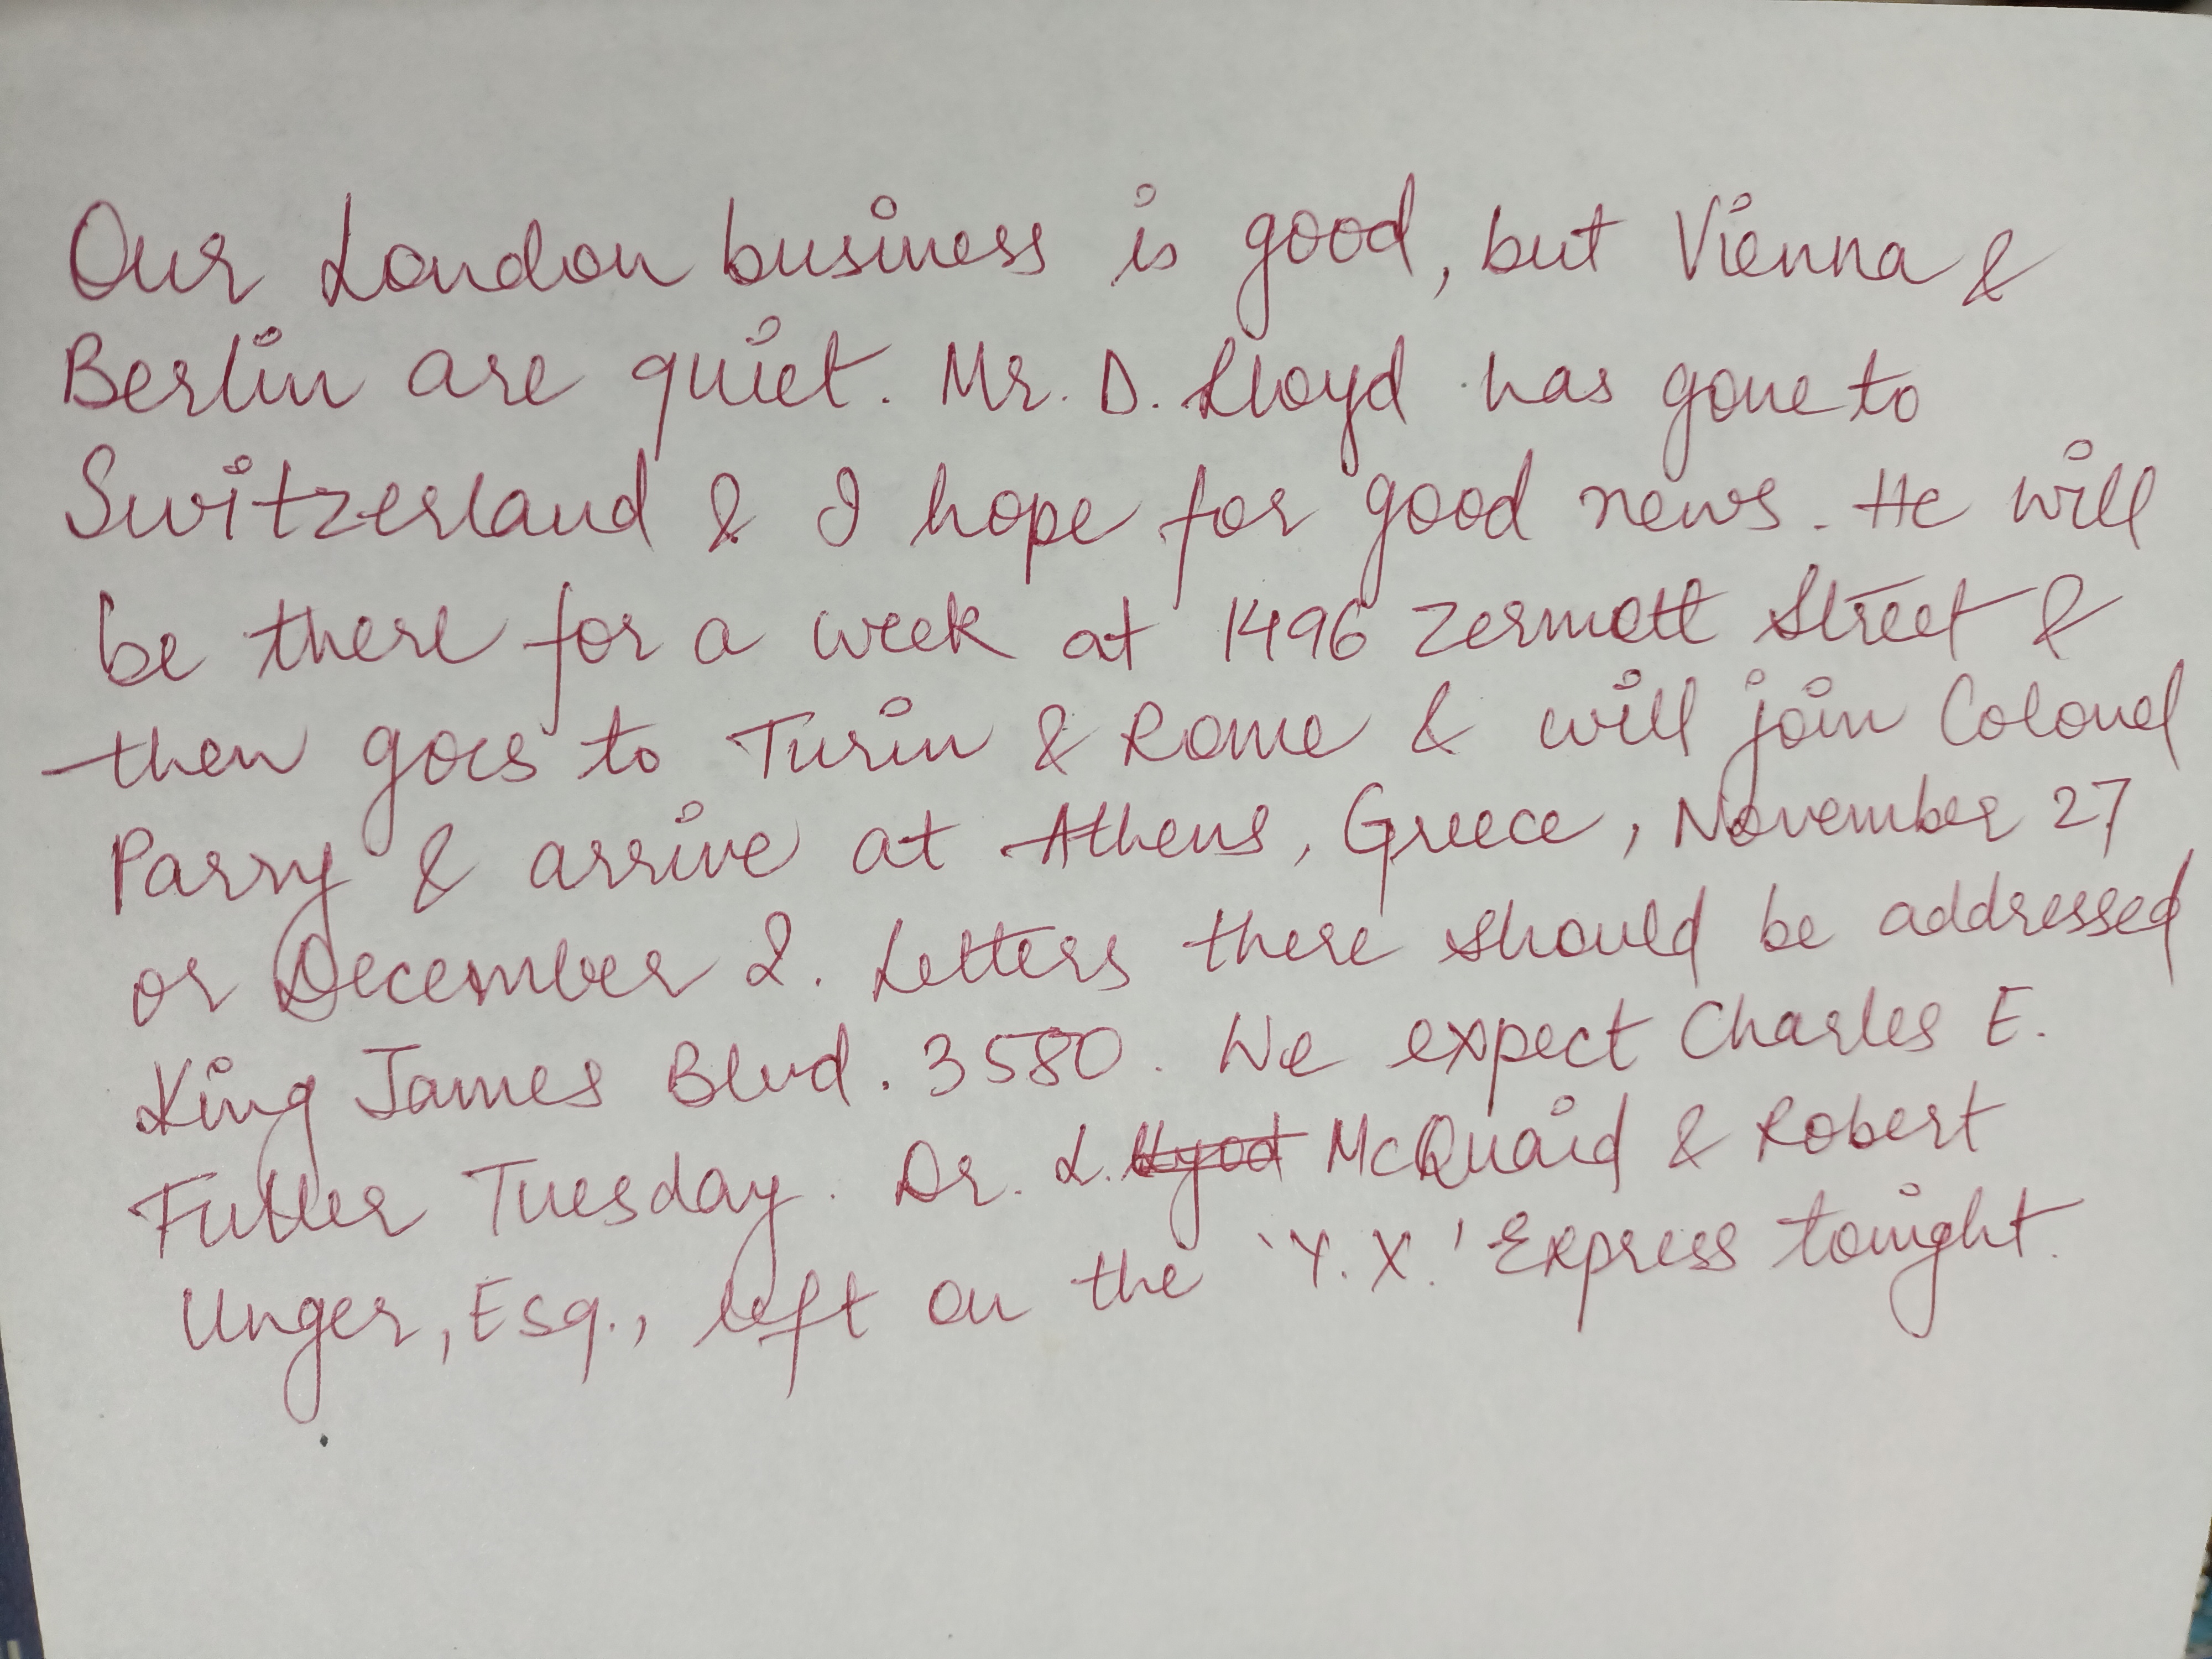 Our London business is good, but Vienna &
Berlin are quiet. Mr. D. Lloyd has gone to
Switzerland & I hope for good news. He will
be there for a week at 1496 Zermott Street &
then goes to Turin & Rome & will join Colonel
Parry & arrive at Athens, Greece, November 27
or December 2. Letters there should be addressed
King James Blvd. 3580. We expect Charles E.
Fuller Tuesday. Dr. L. McQuaid & Robert
Unger, Esq., left on the 'Y.X.' Express tonight.